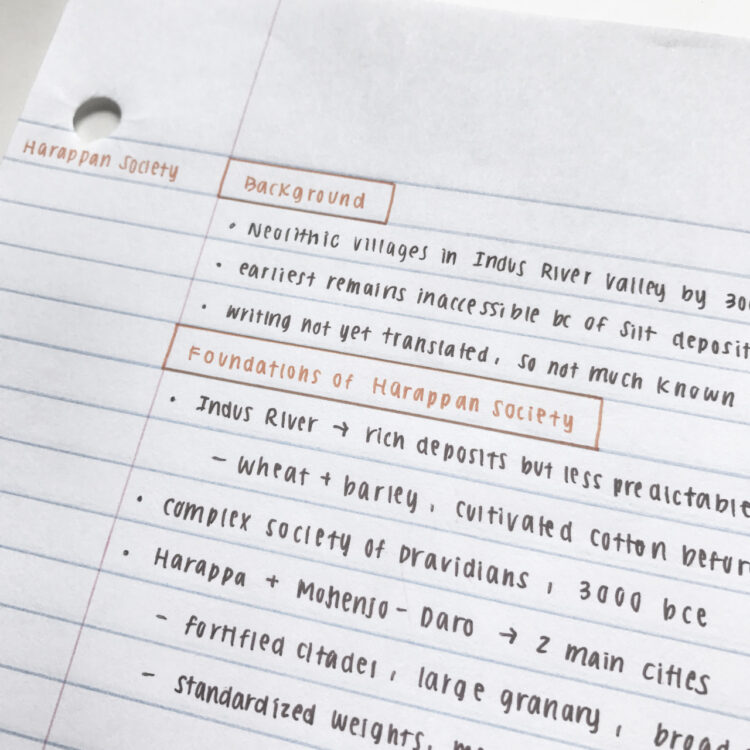 Harappan Society
Background
• Neolithic villages in Indus River Valley by
• earliest remains inaccessible bc of silt deposit
• writing not yet translated, so not much known
Foundations of Harappan Society
• Indus River → rich deposits but less predictable
– wheat + barley, cultivated cotton
• complex society of Dravidians, 3000 bce
• Harappa + Mohenjo-Daro → 2 main cities
– fortified citadel, large granary,
– standardized weights,